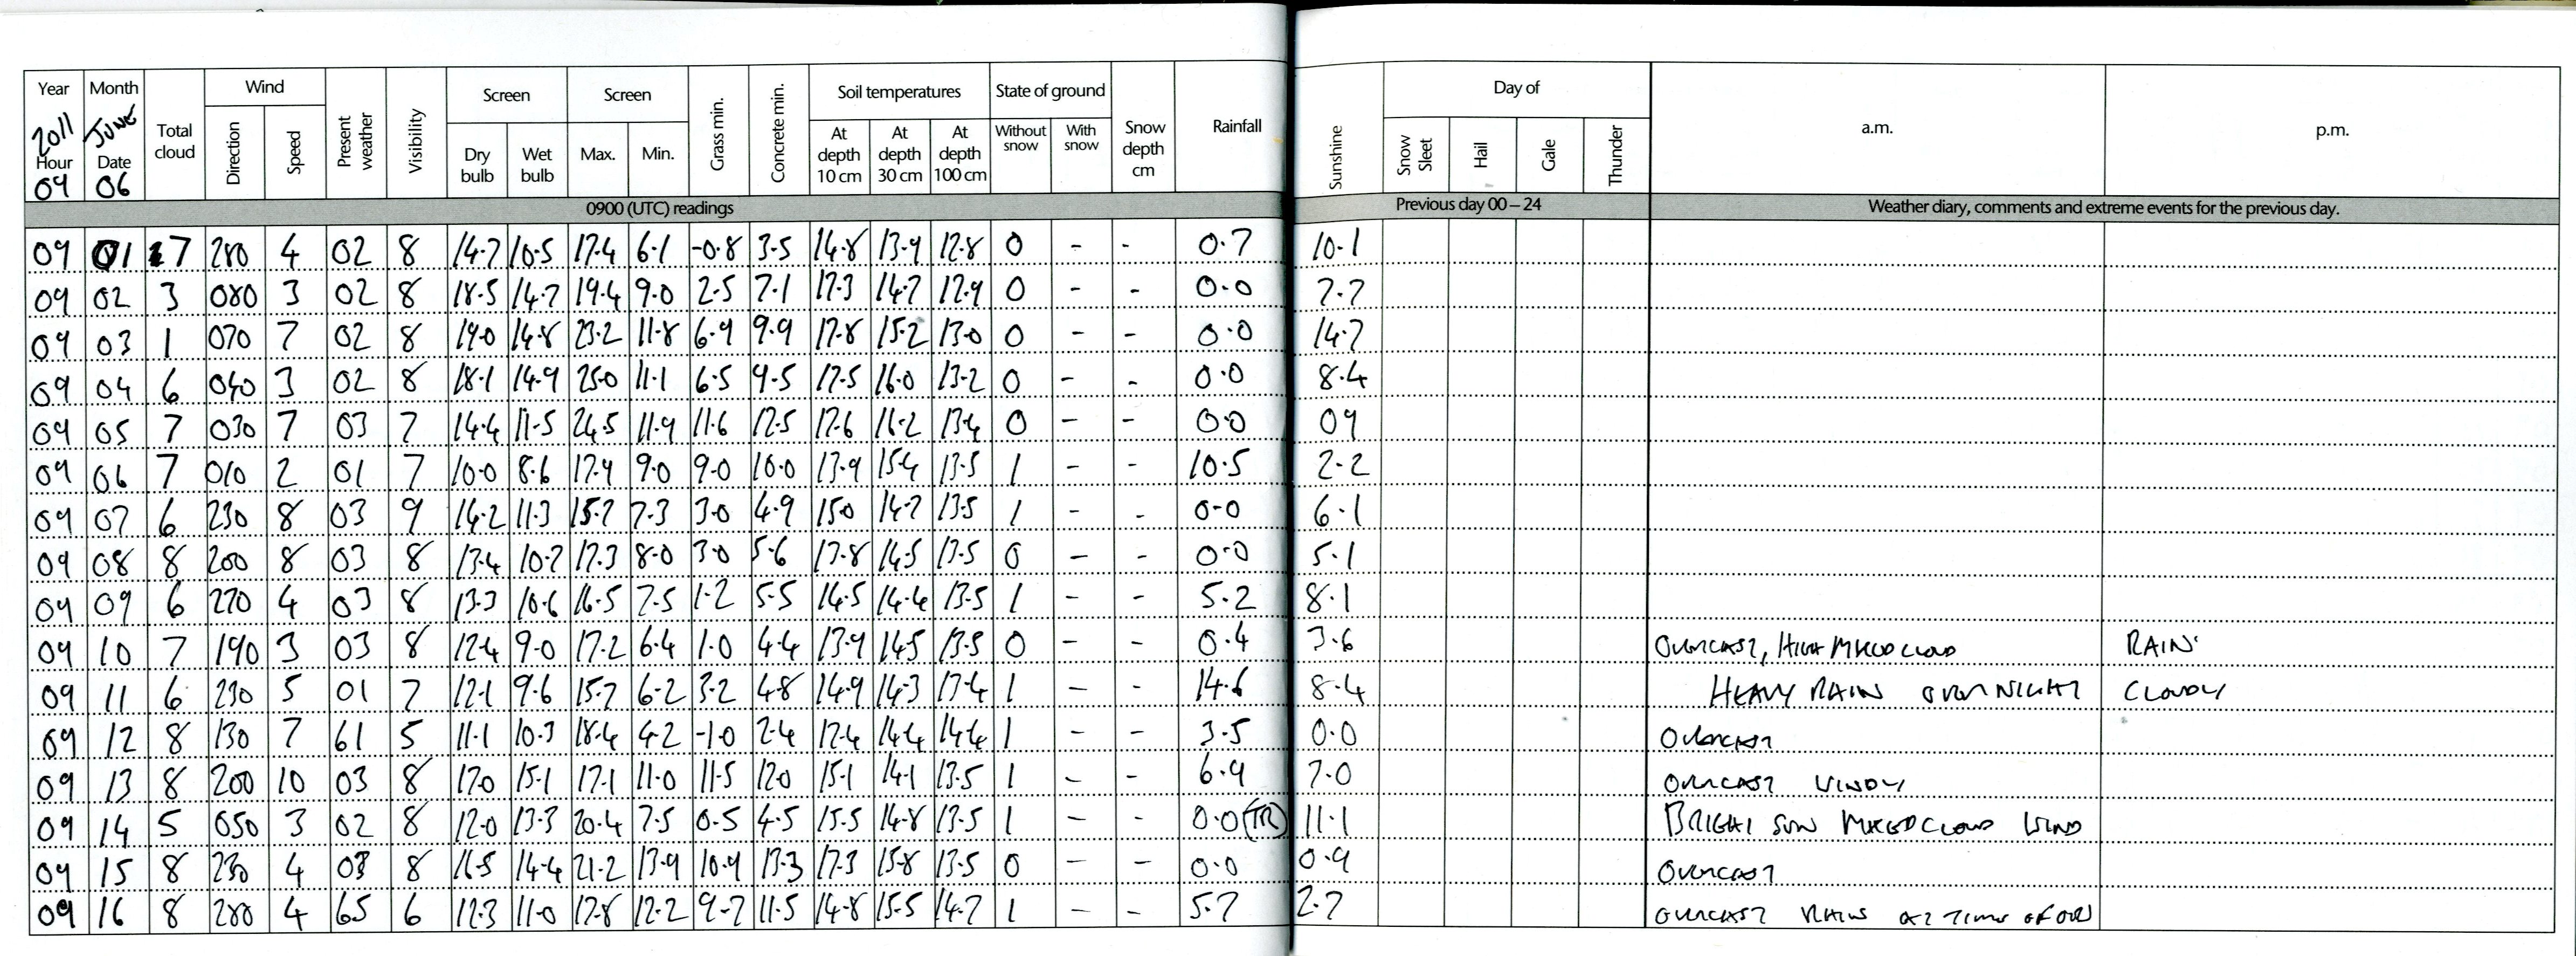 Year Month Total cloud Wind Present weather Visibility Screen Screen Grass min. Concrete min. Soil temperatures State of ground Snow depth cm Rainfall Sunshine Day of a.m. p.m.
2011 JUNE Direction Speed Dry bulb Wet bulb Max. Min. At depth 10 cm At depth 30 cm At depth 100 cm Without snow With snow Snow Sleet Hail Gale Thunder
Hour Date
09 06
0900 (UTC) readings Previous day 00 – 24 Weather diary, comments and extreme events for the previous day.
09 01 7 280 4 02 8 14.7 10.5 17.4 6.1 -0.8 3.5 14.8 13.9 12.8 0 - - 0.7 10.1
09 02 3 080 3 02 8 18.5 14.7 19.4 9.0 2.5 7.1 17.3 14.7 12.9 0 - - 0.0 7.7
09 03 1 070 7 02 8 19.0 14.8 23.2 11.8 6.9 9.9 17.8 15.2 13.0 0 - - 0.0 14.7
09 04 6 040 3 02 8 18.1 14.9 25.0 11.1 6.5 9.5 17.5 16.0 13.2 0 - - 0.0 8.4
09 05 7 030 7 03 7 14.4 11.5 24.5 11.9 11.6 12.5 17.6 16.2 13.4 0 - - 0.0 09
09 06 7 010 2 01 7 10.0 8.6 17.9 9.0 9.0 10.0 13.9 15.4 13.5 1 - - 10.5 2.2
09 07 6 230 8 03 9 14.2 11.3 15.7 7.3 3.0 4.9 15.0 14.7 13.5 1 - - 0.0 6.1
09 08 8 200 8 03 8 13.4 10.7 17.3 8.0 3.0 5.6 13.8 14.5 13.5 0 - - 0.0 5.1
09 09 6 270 4 03 8 13.3 10.6 16.5 7.5 1.2 5.5 14.5 14.4 13.5 1 - - 5.2 8.1
09 10 7 190 3 03 8 12.4 9.0 17.2 6.4 1.0 4.4 13.9 14.5 13.5 0 - - 0.4 3.6 OVERCAST, HIGH MIXED CLOUD RAIN
09 11 6 230 5 01 7 12.1 9.6 15.7 6.2 3.2 4.8 14.9 14.3 13.4 1 - - 14.6 8.4 HEAVY RAIN OVERNIGHT CLOUDY
09 12 8 130 7 61 5 11.1 10.3 18.4 4.2 -1.0 2.4 12.4 14.4 14.4 1 - - 3.5 0.0 OVERCAST
09 13 8 200 10 03 8 17.0 15.1 17.1 11.0 11.5 12.0 15.1 14.1 13.5 1 - - 6.9 7.0 OVERCAST WINDY
09 14 5 050 3 02 8 12.0 13.3 20.4 7.5 0.5 4.5 15.5 14.8 13.5 1 - - 0.0 (TR) 11.1 BRIGHT SUN MIXED CLOUD WIND
09 15 8 230 4 03 8 16.5 14.4 21.2 13.9 10.9 13.3 17.3 15.8 13.5 0 - - 0.0 0.9 OVERCAST
09 16 8 280 4 65 6 12.3 11.0 17.8 12.2 9.7 11.5 14.8 15.5 14.7 1 - - 5.7 2.7 OVERCAST RAIN AT TIME OF OBS